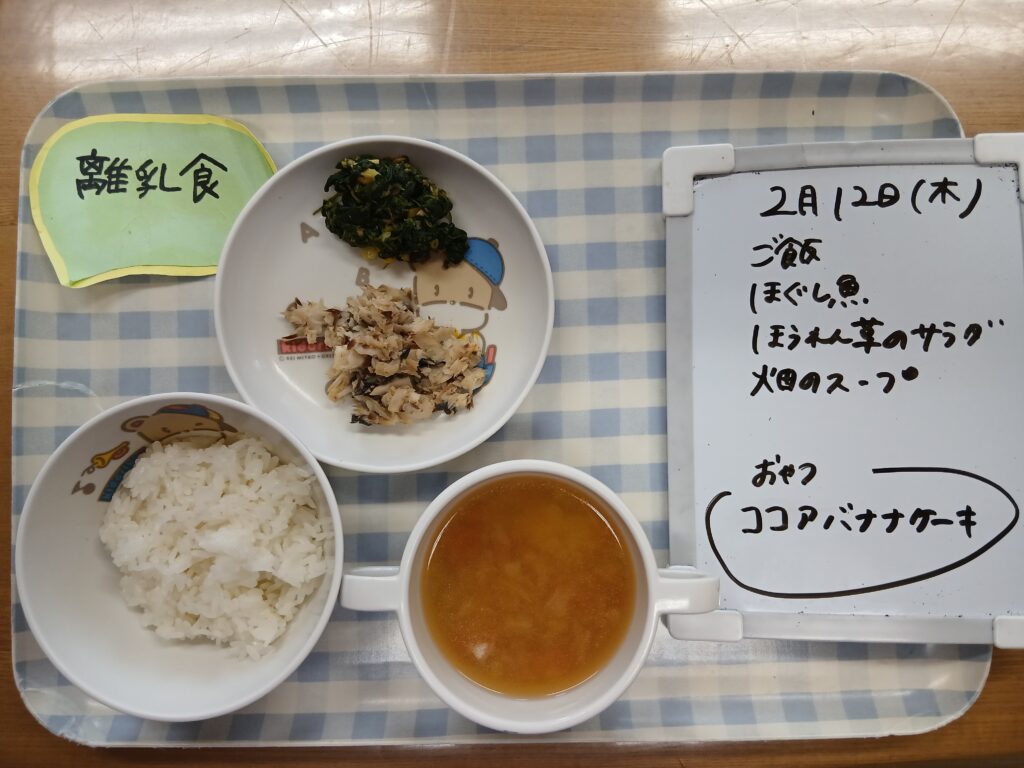 離乳食
A
B
2月12日(木)
ご飯
ほぐし魚
ほうれん草のサラダ
畑のスープ
おやつ
ココアバナナケーキ